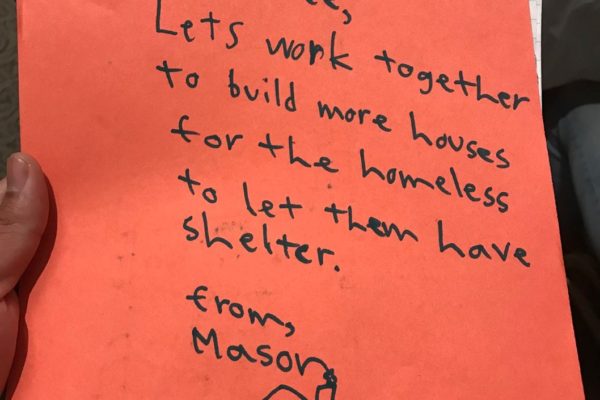 Lets work together
to build more houses
for the homeless
to let them have
shelter.
from,
Mason